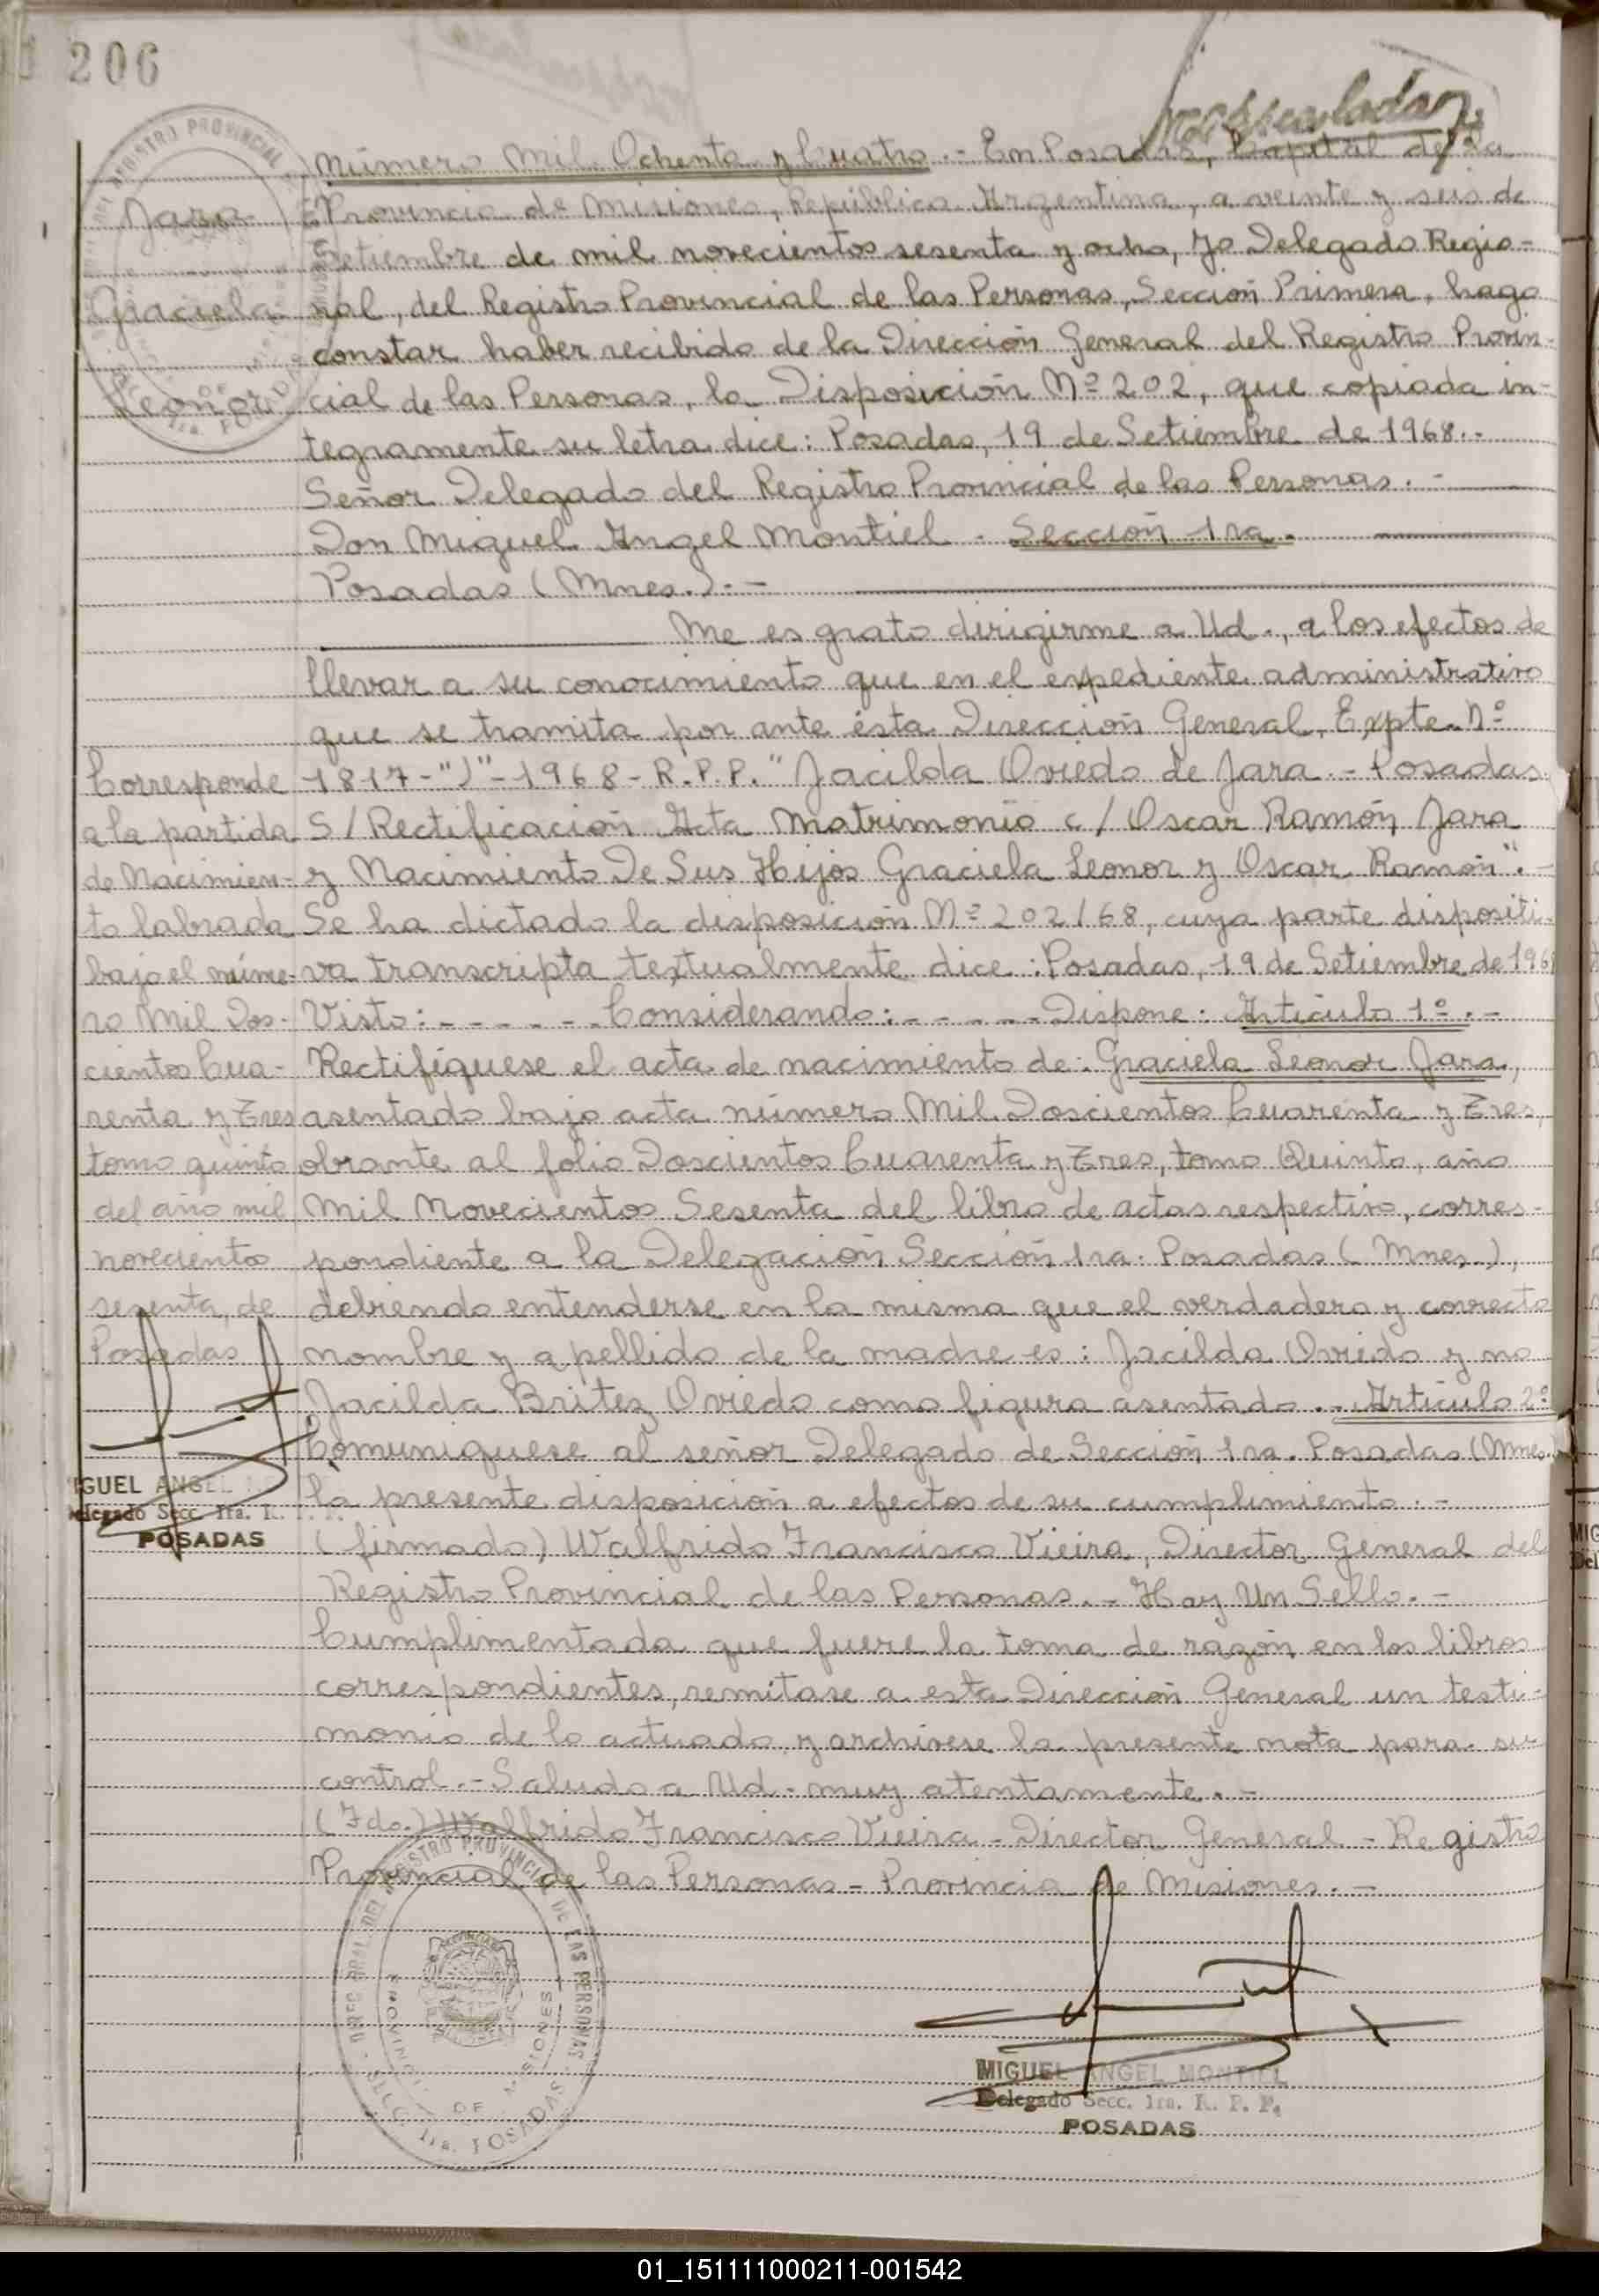 206
Número Mil Ochenta y Cuatro.- En Posadas, Capital de la
Provincia de Misiones, República Argentina, a veinte y seis de
Setiembre de mil novecientos sesenta y ocho, Yo Delegado Regio-
nal, del Registro Provincial de las Personas, Sección Primera, hago
constar haber recibido de la Dirección General del Registro Provin-
cial de las Personas, la Disposición Nº 202, que copiada in-
tegramente su letra dice: Posadas, 19 de Setiembre de 1968.-
Señor Delegado del Registro Provincial de las Personas.-
Don Miguel Angel Montiel - Sección 1ra.
Posadas (Mnes.).-
Me es grato dirigirme a Ud., a los efectos de
llevar a su conocimiento que en el expediente administrativo
que se tramita por ante ésta Dirección General, Expte. Nº
1817-"J"-1968-R.P.P." Jacilda Oviedo de Jara.- Posadas
S/Rectificación Acta Matrimonio c/ Oscar Ramón Jara
y Nacimiento De Sus Hijos Graciela Leonor y Oscar Ramón".-
Se ha dictado la disposición Nº 202/68, cuya parte dispositi-
va transcripta textualmente dice: Posadas, 19 de Setiembre de 1968
Visto:------Considerando:-----Dispone: Artículo 1º.-
Rectifíquese el acta de nacimiento de: Graciela Leonor Jara,
asentado bajo acta número Mil Doscientos Cuarenta y Tres,
obrante al folio Doscientos Cuarenta y Tres, tomo Quinto, año
Mil Novecientos Sesenta del libro de actas respectivo, corres-
pondiente a la Delegación Sección 1ra. Posadas (Mnes.),
debiendo entenderse en la misma que el verdadero y correcto
nombre y apellido de la madre es: Jacilda Oviedo y no
Jacilda Britez Oviedo como figura asentado.- Artículo 2º
Comuníquese al señor Delegado de Sección 1ra. Posadas (Mnes.)
la presente disposición a efectos de su cumplimiento.-
(firmado) Walfrido Francisco Vieira, Director General del
Registro Provincial de las Personas.- Hay Un Sello.-
Cumplimentada que fuere la toma de razón en los libros
correspondientes, remítase a esta Dirección General un testi-
monio de lo actuado y archívese la presente nota para su
control.- Saludo a Ud. muy atentamente.-
(Fdo.) Walfrido Francisco Vieira - Director General - Registro
Provincial de las Personas - Provincia de Misiones.-
Jara
Graciela
Leonor
Corresponde
a la partida
de Nacimien-
to labrada
bajo el núme-
ro Mil Dos-
cientos Cua-
renta y Tres
tomo quinto
del año mil
novecientos
sesenta, de
Posadas
IGUEL ANGEL
Delegado Secc. 1ra. R.
POSADAS
DEL REGISTRO PROVINCIAL DE LAS PERSONAS
PROVINCIA DE MISIONES
SECC. 1ra. POSADAS
MIGUEL ANGEL MONTIEL
Delegado Secc. 1ra. R. P. P.
POSADAS
01_151111000211-001542